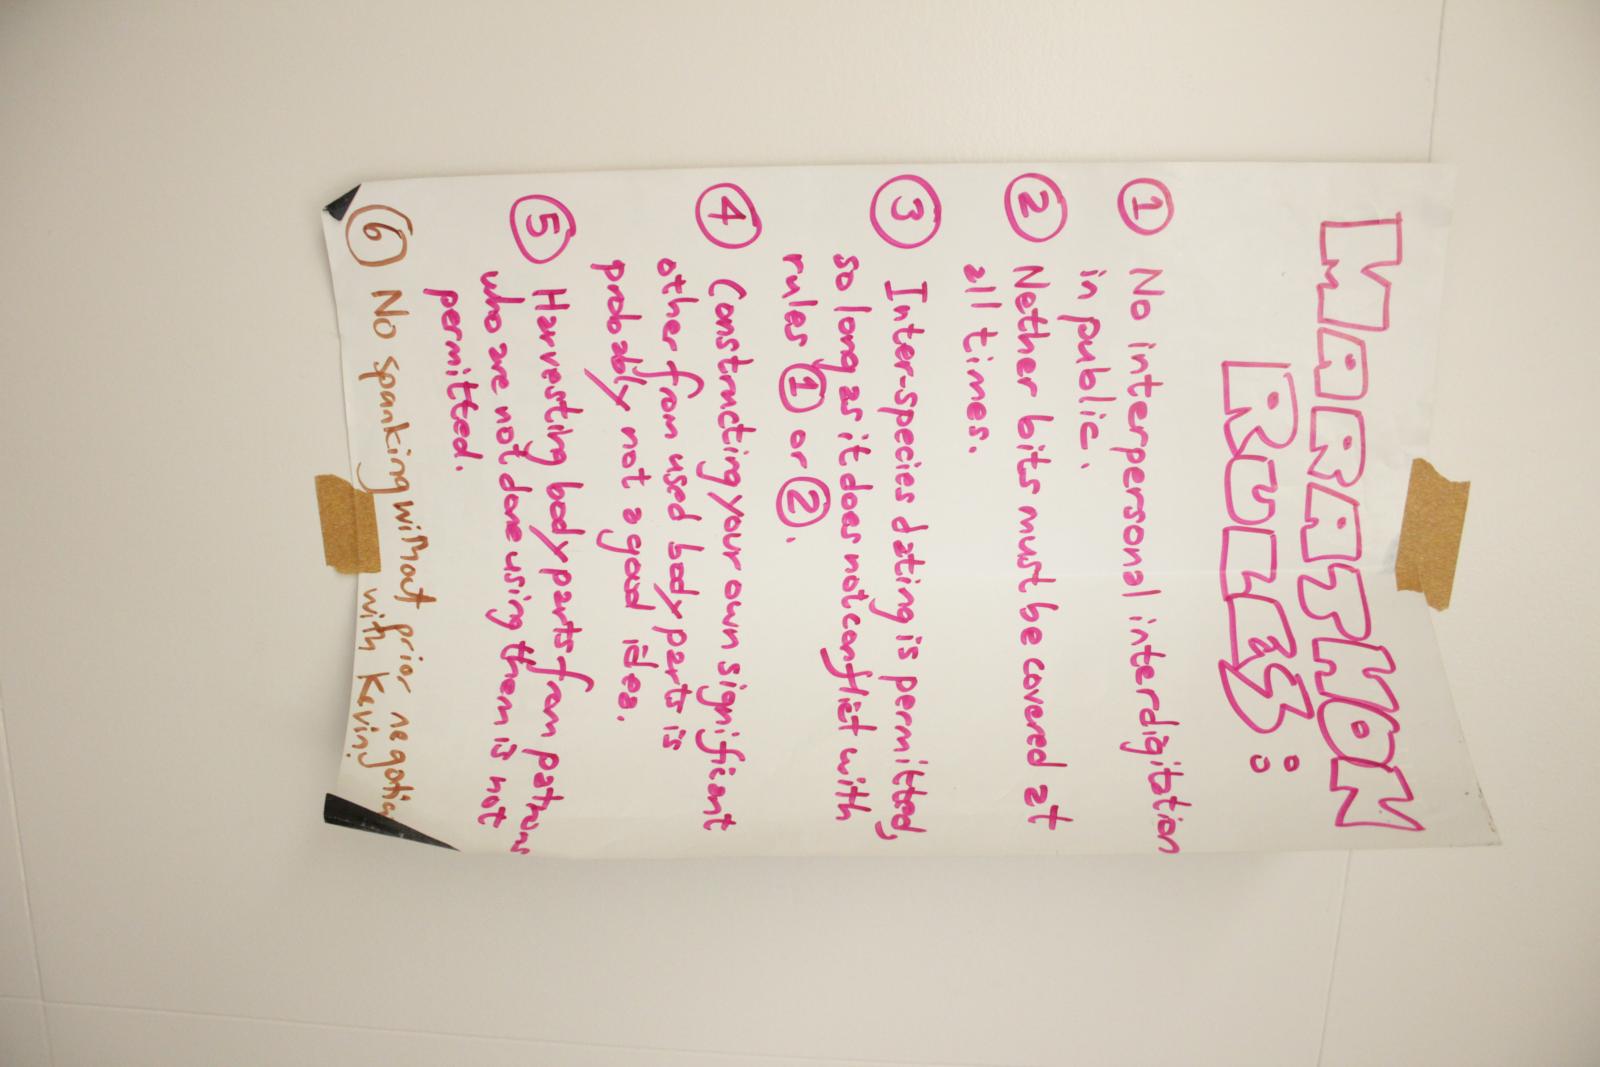 MARATHON
RULES:
① No interpersonal interdigitation
in public.
② Nether bits must be covered at
all times.
③ Inter-species dating is permitted,
so long as it does not conflict with
rules ① or ②.
④ Constructing your own significant
other from used body parts is
probably not a good idea.
⑤ Harvesting body parts from patrons
who are not done using them is not
permitted.
⑥ No spanking without prior negotia
with Kevin.